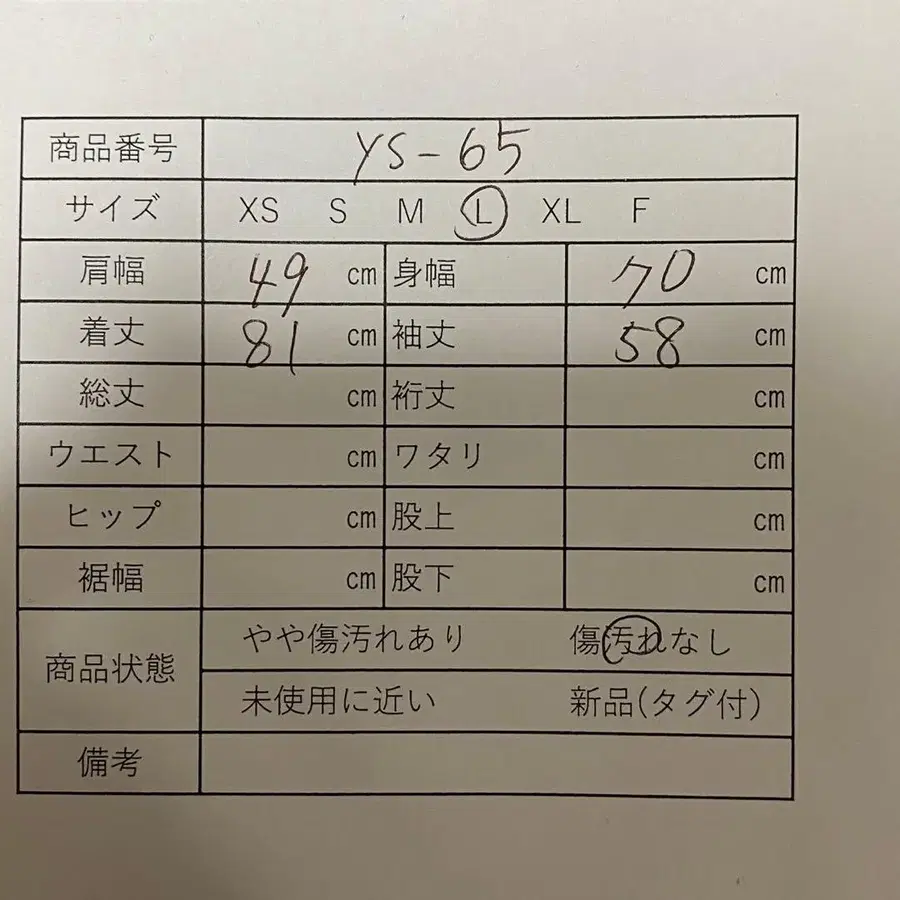 商品番号 YS-65
サイズ XS S M L XL F
肩幅 49 cm 身幅 70 cm
着丈 81 cm 袖丈 58 cm
総丈 cm 裄丈 cm
ウエスト cm ワタリ cm
ヒップ cm 股上 cm
裾幅 cm 股下 cm
商品状態 やや傷汚れあり 傷汚れなし
未使用に近い 新品(タグ付)
備考